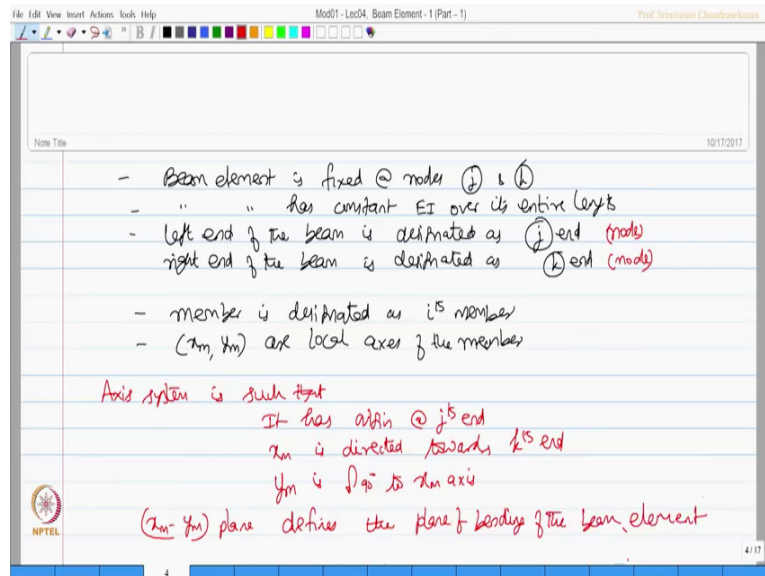 File Edit View Insert Actions Tools Help
Mod01 - Lec04, Beam Element - 1 (Part – 1)
Prof. Srinivasan Chandrasekaran
Note Title
10/17/2017
- Beam element is fixed @ nodes j & k
- " " has constant EI over its entire length
- left end of the beam is designated as j end (node)
right end of the beam is designated as k end (node)
- member is designated as ith member
- (xm, ym) are local axes of the member
Axis system is such that
It has origin @ jth end
xm is directed towards kth end
ym is 90° to xm axis
(xm - ym) plane defines the plane of bending of the beam element
NPTEL
4 / 17
4